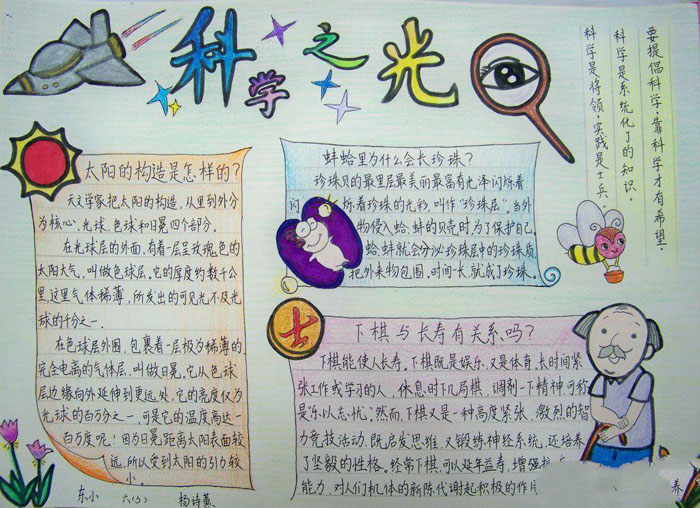 科学之光
要提倡科学,靠科学才有希望.
科学是系统化了的知识.
科学是将领,实践是士兵.
太阳的构造是怎样的?
天文学家把太阳的构造,从里到外分
为核心、光球、色球和日冕四个部分.
在光球层的外面,有着一层呈玫瑰色的
太阳大气,叫做色球层,它的厚度约数千公
里,这里气体稀薄,所发出的可见光不及光
球的千分之一.
在色球层外围,包裹着一层极为稀薄的,
完全电离的气体层,叫做日冕.它从色球
层边缘向外延伸到更远处,它的亮度仅为
光球的百万分之一,可是它的温度高达一
百万度呢!因为日冕距离太阳表面较
远,所以受到太阳的引力较
小.
蚌蛤里为什么会长珍珠?
珍珠贝的最里层最美丽最富有光泽闪烁着
闪烁着珍珠的光彩,叫作"珍珠层".当外
物侵入蛤、蚌的贝壳时,为了保护自己,
蛤、蚌就会分泌珍珠层中的珍珠质
把外来物包围,时间一长,就成了珍珠.
士
下棋与长寿有关系吗?
下棋能使人长寿.下棋既是娱乐,又是体育,长时间紧
张工作或学习的人,休息时下几局棋,调剂一下精神,可称
是"乐以志忧".然而,下棋又是一种高度紧张、激烈的智
力竞技活动,既启发思维,又锻炼神经系统,还培养
了坚毅的性格.经常下棋,可以延年益寿,增强
能力,对人们机体的新陈代谢起积极的作用
养
东小 六(3) 杨诗薰